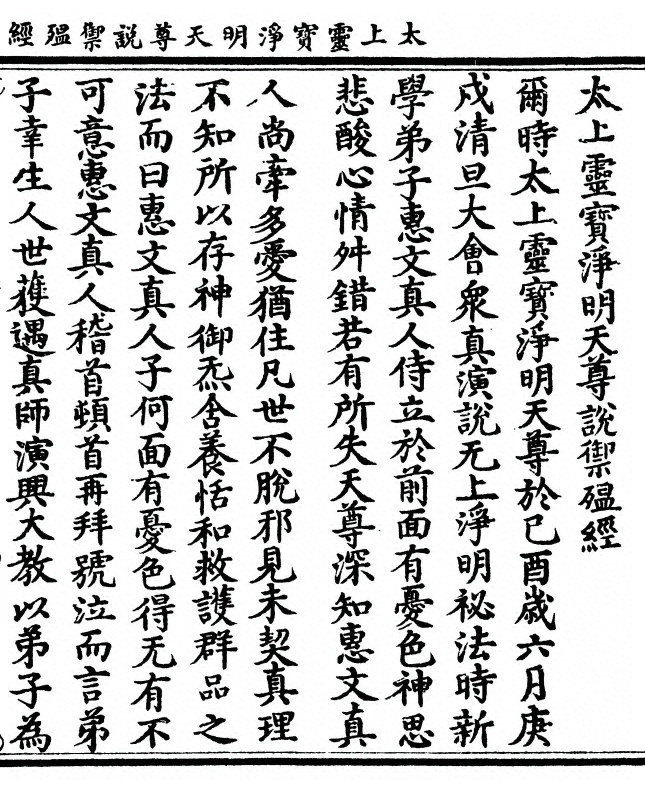 太上靈寶淨明天尊說禦瘟經
太上靈寶淨明天尊說禦殟經
爾時太上靈寶淨明天尊於己酉歲六月庚
戌清旦大會衆真演說无上淨明祕法時新
學弟子惠文真人侍立於前面有憂色神思
悲酸心情舛錯若有所失天尊深知惠文真
人尚牽多愛猶住凡世不脫邪見未契真理
不知所以存神御炁含養恬和救護群品之
法而曰惠文真人子何面有憂色得无有不
可意惠文真人稽首頓首再拜號泣而言弟
子幸生人世獲遇真師演興大教以弟子為